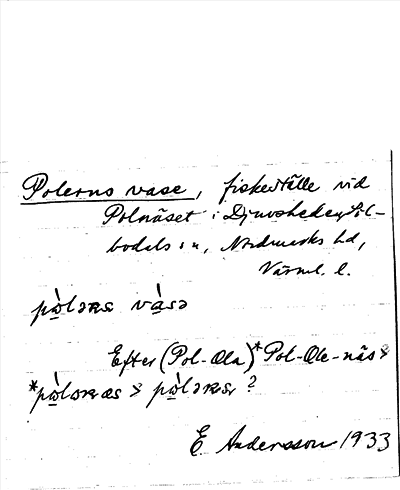 Polerns vase, fiskeställe vid
Polnäset i Djuvsheden, Sil-
bodals sn, Nordmarks hd,
Värml. l.
pòlərs vàsə
Efter (Pol-Ola) *Pol-Ole-näs >
*pòlərnæs > pòlərs, ?
E. Andersson 1933